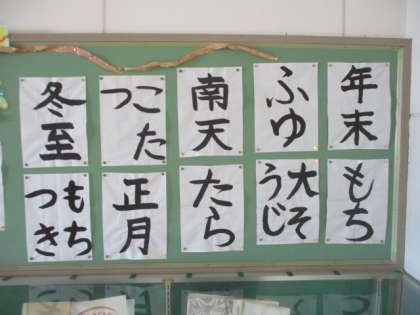 年末
ふゆ
南天
こたつ
冬至
もち
大そうじ
たら
正月
もちつき